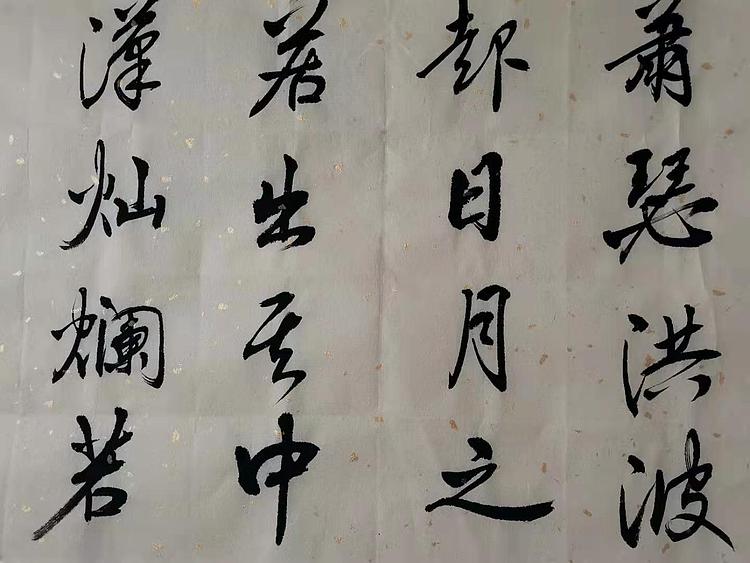 蕭瑟洪波
起日月之
若出其中
漢灿爛若